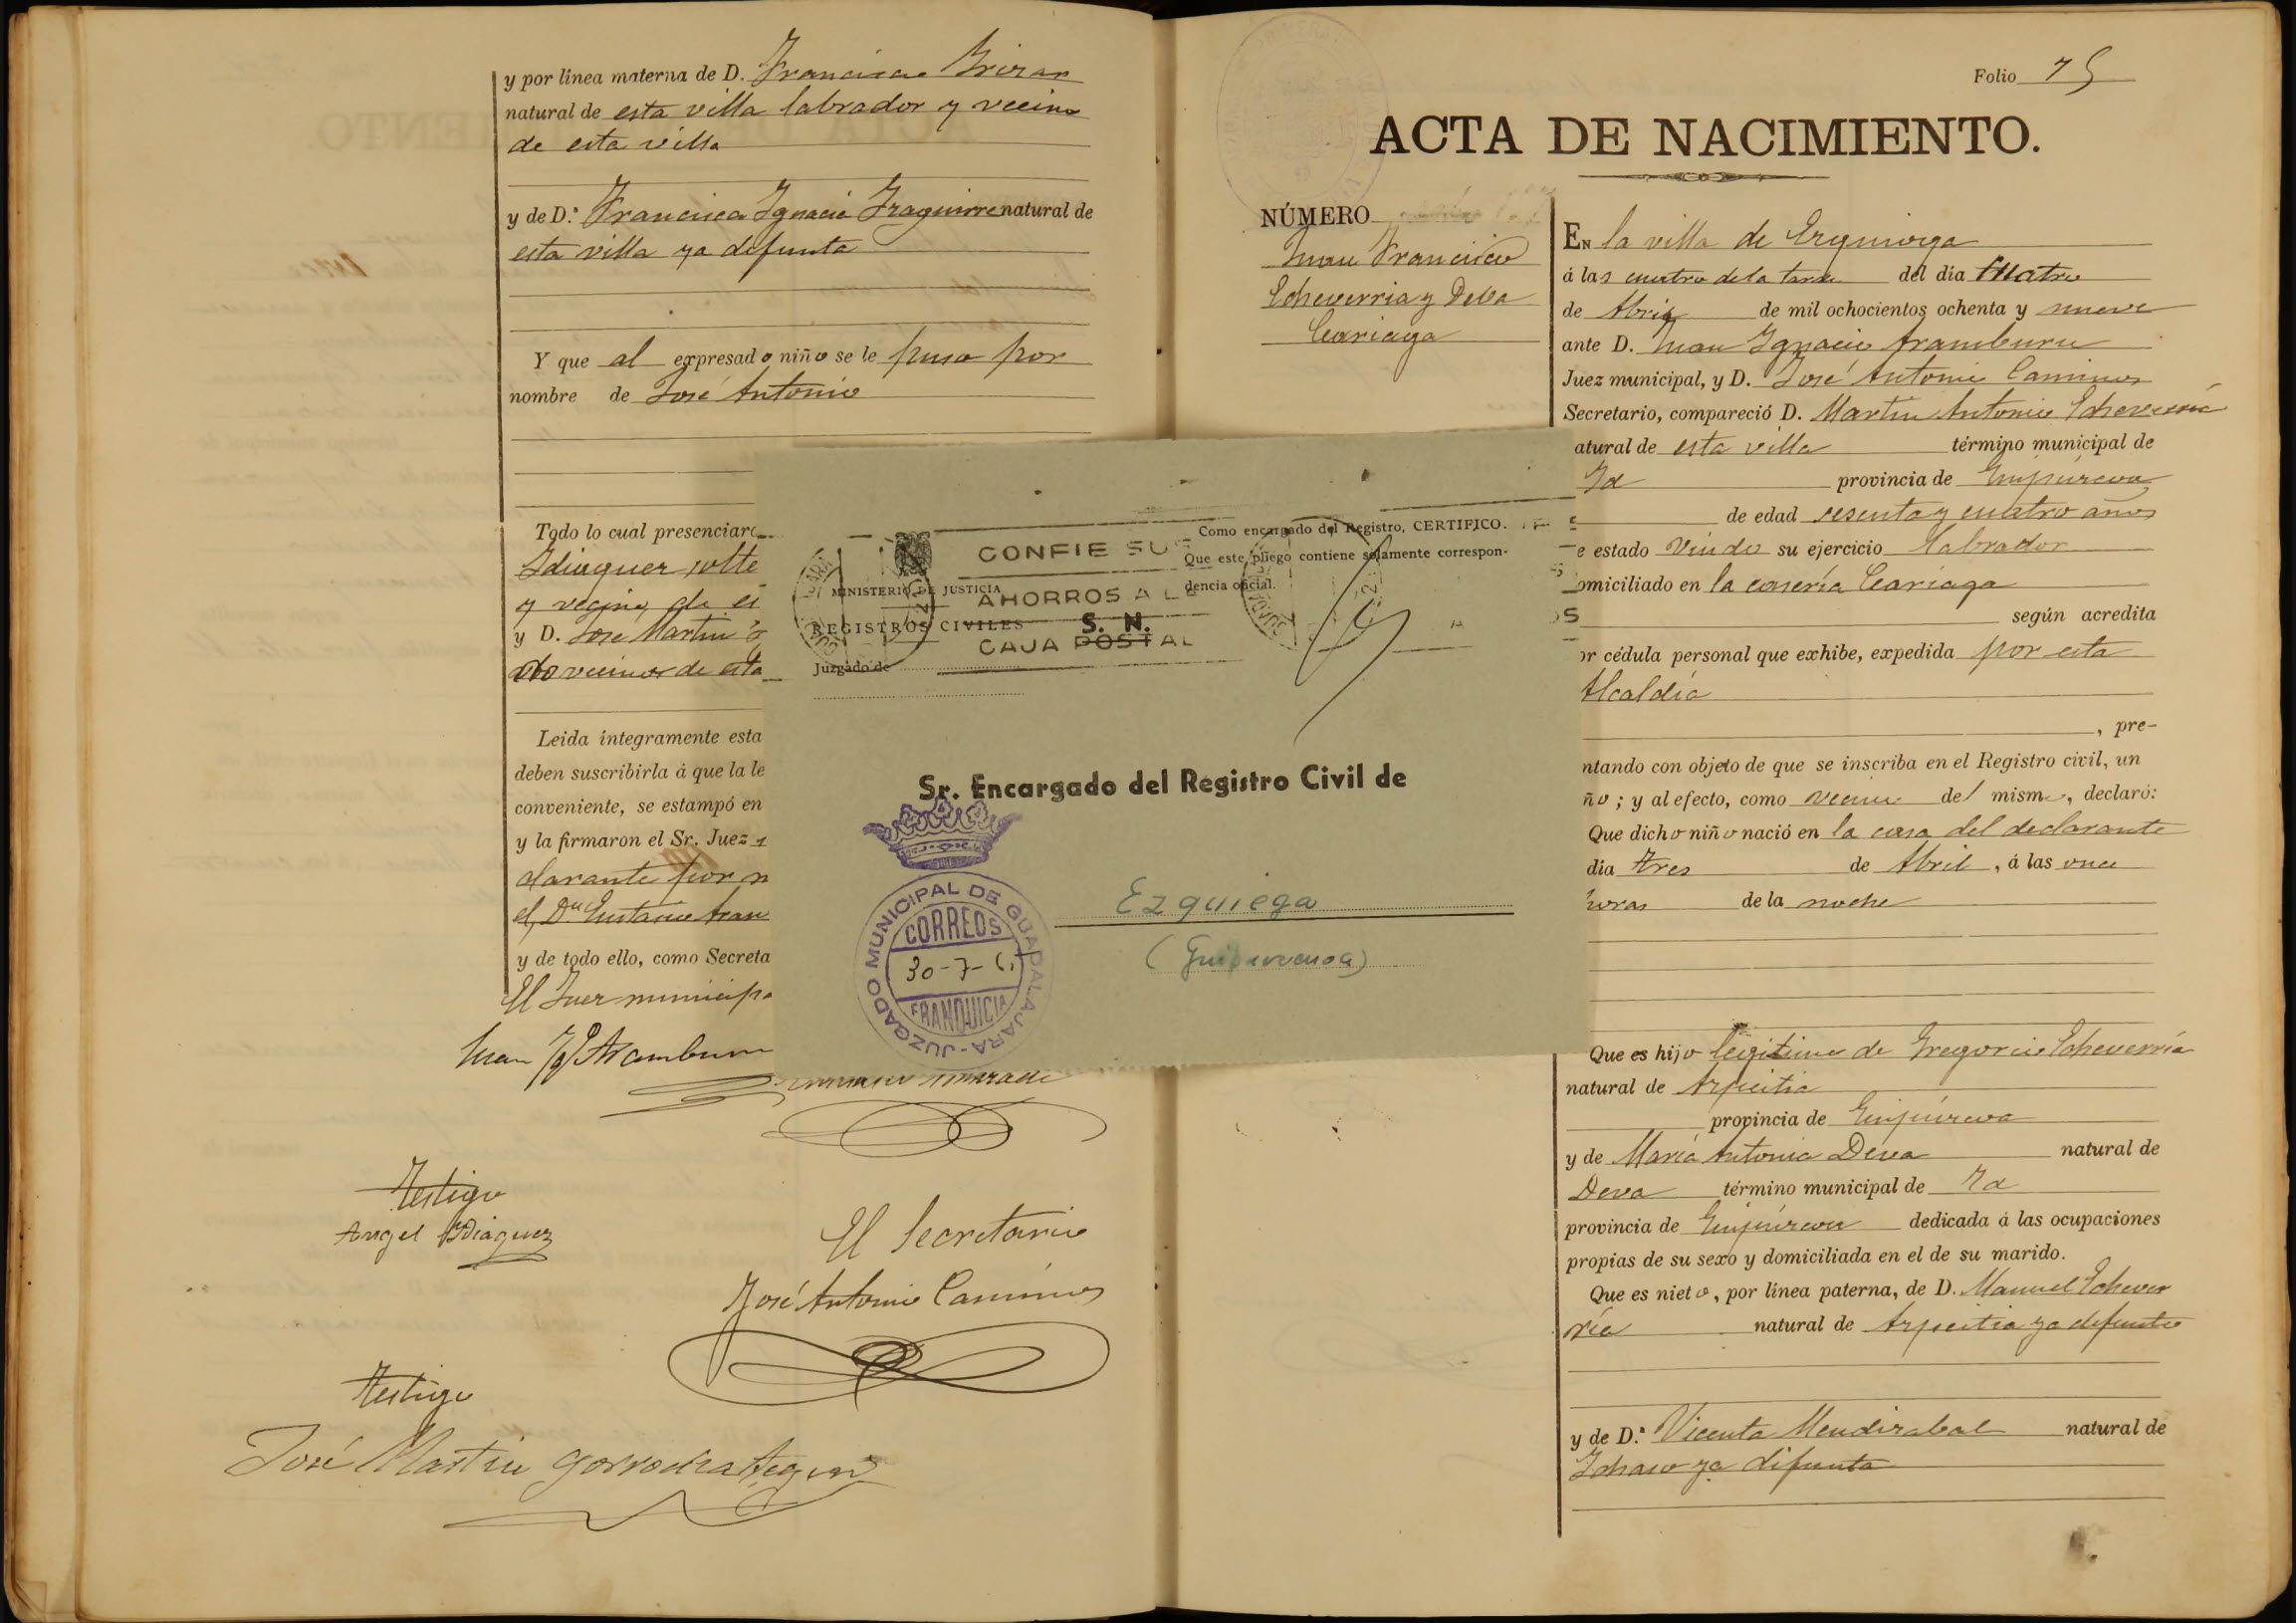 y por línea materna de D. Francisco Irizar
natural de esta villa labrador y vecino
de esta villa
y de D.ª Francisca Ignacia Izaguirre natural de
esta villa ya defunta
Y que al expresado niño se le puso por
nombre de José Antonio
Todo lo cual presenciaro
Idiaquez solte
y vecino de es
y D. José Martin
vecinos de esta
Leida íntegramente esta
deben suscribirla á que la le
conveniente, se estampó en
y la firmaron el Sr. Juez
clarante por n
el, Dn Eustasio Aran
y de todo ello, como Secreta
El Juez municipa
Juan Ig.º Aramburu
Testigo
Angel Ydiaquez
El Secretario
José Antonio Caminos
Testigo
José Martin Gorrochategui
Como encargado del Registro, CERTIFICO.
Que este pliego contiene solamente correspon-
dencia oficial.
CONFIE SUS
AHORROS A LA
CAJA POSTAL
MINISTERIO DE JUSTICIA
REGISTROS CIVILES
S. N.
Juzgado de
Sr. Encargado del Registro Civil de
Ezquiega
(Guipuzcoa)
JUZGADO MUNICIPAL DE GUADALAJARA
CORREOS
30-7-61
FRANQUICIA
Folio 75
ACTA DE NACIMIENTO.
NÚMERO
Juan Francisco
Echeverria y Deva
Cariaga
En la villa de Ezquioga
á las cuatro de la tarde del dia cuatro
de Abril de mil ochocientos ochenta y nueve
ante D. Juan Ignacio Aramburu
Juez municipal, y D. José Antonio Caminos
Secretario, compareció D. Martin Antonio Echeverria
atural de esta villa término municipal de
Id provincia de Guipúzcoa
de edad sesenta y cuatro años
e estado Viudo su ejercicio labrador
omiciliado en la casería Cariaga
según acredita
or cédula personal que exhibe, expedida por esta
Alcaldía
, pre-
ntando con objeto de que se inscriba en el Registro civil, un
ño; y al efecto, como vecino del mismo, declaró:
Que dicho niño nació en la casa del declarante
dia tres de Abril, á las once
horas de la noche
Que es hijo legítimo de Gregorio Echeverría
natural de Azpeitia
provincia de Guipúzcoa
y de María Antonia Deva natural de
Deva término municipal de Id
provincia de Guipúzcoa dedicada á las ocupaciones
propias de su sexo y domiciliada en el de su marido.
Que es nieto, por línea paterna, de D. Manuel Echever
ría natural de Azpeitia ya defunto
y de D.ª Vicenta Mendizabal natural de
Ichaso ya difunta